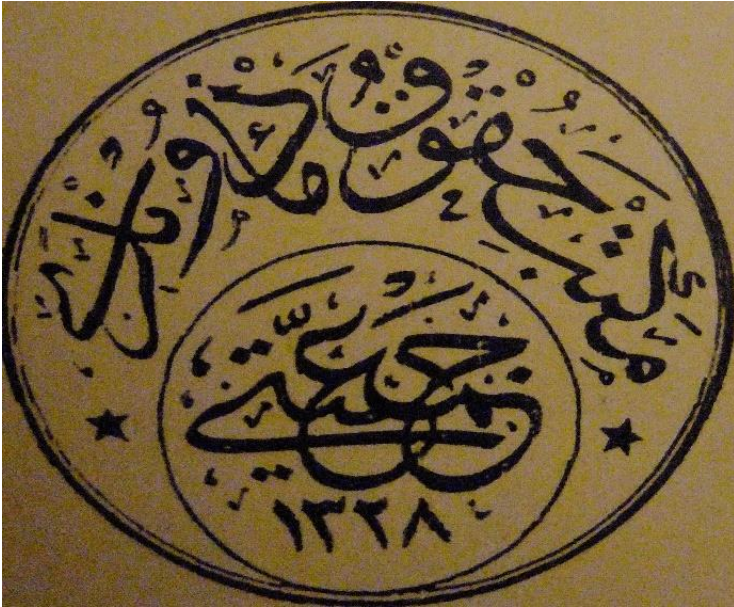 مكتب حقوق مأذونلری
جمعیتی
١٣٢٨